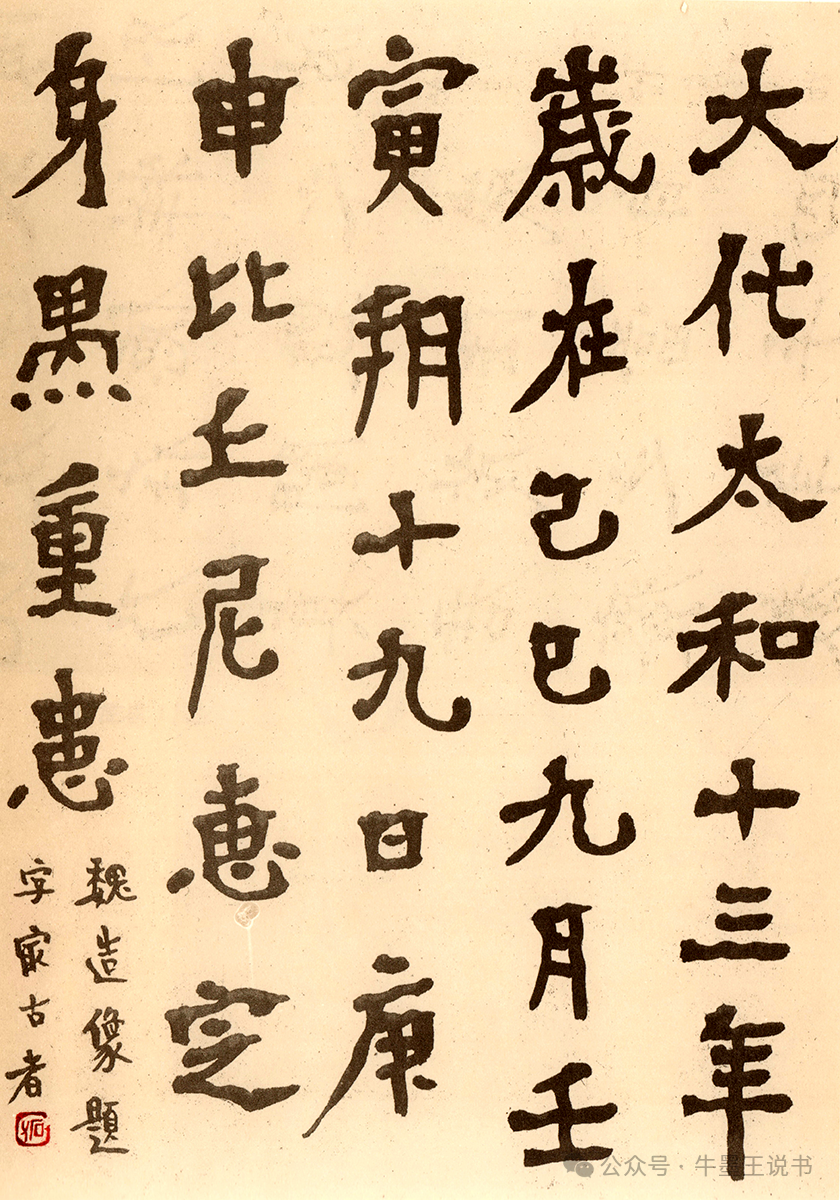 大代太和十三年
歲在己巳九月壬
寅朔十九日庚
申比丘尼惠定
身愚重患
魏造像題
字冣古者
公众号·牛墨王说书